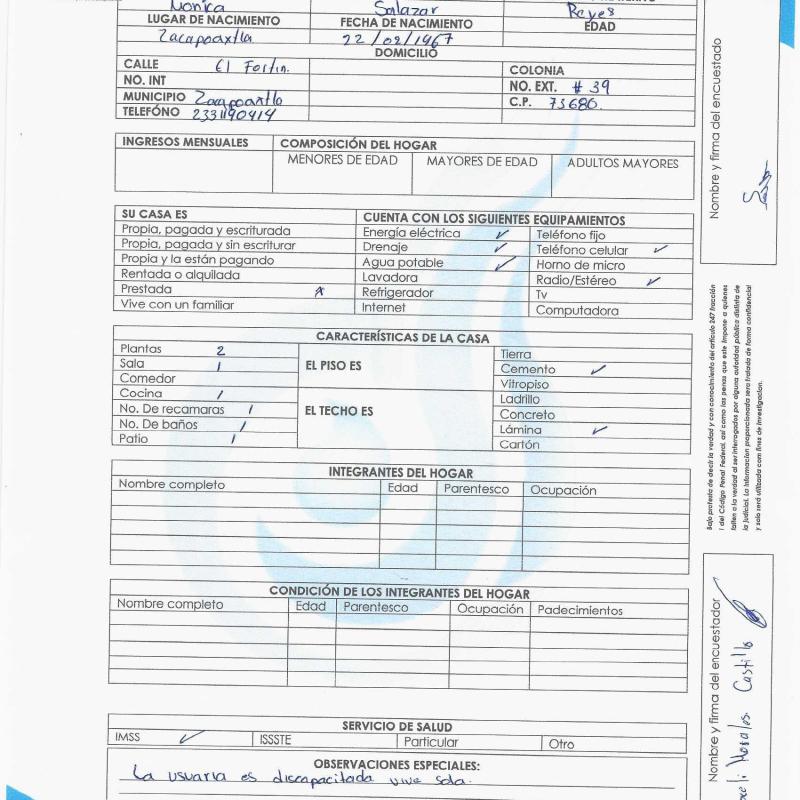 Monica Salazar Reyes
LUGAR DE NACIMIENTO FECHA DE NACIMIENTO EDAD
Zacapoaxtla 22/02/1967
DOMICILIO
CALLE El Fortin. COLONIA
NO. INT NO. EXT. # 39
MUNICIPIO Zacapoaxtla C.P. 73680
TELÉFONO 2331190414
INGRESOS MENSUALES COMPOSICIÓN DEL HOGAR
MENORES DE EDAD MAYORES DE EDAD ADULTOS MAYORES
SU CASA ES CUENTA CON LOS SIGUIENTES EQUIPAMIENTOS
Propia, pagada y escriturada Energía eléctrica ✓ Teléfono fijo
Propia, pagada y sin escriturar Drenaje ✓ Teléfono celular ✓
Propia y la están pagando Agua potable ✓ Horno de micro
Rentada o alquilada Lavadora Radio/Estéreo ✓
Prestada x Refrigerador Tv
Vive con un familiar Internet Computadora
CARACTERÍSTICAS DE LA CASA
Plantas 2
Sala 1
Comedor
Cocina 1
No. De recamaras 1
No. De baños 1
Patio 1
EL PISO ES
Tierra
Cemento ✓
Vitropiso
EL TECHO ES
Ladrillo
Concreto
Lámina ✓
Cartón
INTEGRANTES DEL HOGAR
Nombre completo Edad Parentesco Ocupación
CONDICIÓN DE LOS INTEGRANTES DEL HOGAR
Nombre completo Edad Parentesco Ocupación Padecimientos
SERVICIO DE SALUD
IMSS ✓ ISSSTE Particular Otro
OBSERVACIONES ESPECIALES:
La usuaria es discapacitada vive sola.
Nombre y firma del encuestado
Bajo protesta de decir la verdad y con conocimiento del artículo 247 fracción
I del Código Penal Federal, así como las penas que este impone a quienes
falten a la verdad al ser interrogados por alguna autoridad pública distinta de
la judicial. La información proporcionada sera tratada de forma confidencial
y solo será utilizada con fines de investigación.
Nombre y firma del encuestador
Morales Castillo